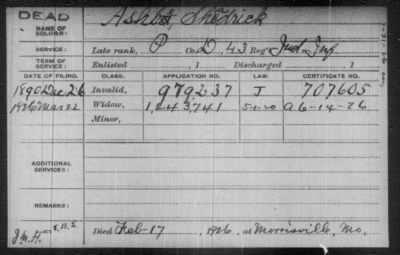 DEAD
NAME OF SOLDIER: Ashby, Shedrick
SERVICE: Late rank, P Co. D, 43 Reg't Ind. Inf.
TERM OF SERVICE: Enlisted , 1 Discharged , 1
DATE OF FILING. CLASS. APPLICATION NO. LAW. CERTIFICATE NO.
1890 Dec 26 Invalid, 979237 J 707605
1926 Mar 22 Widow, 1,243,741 5-1-20 A 6-14-26
Minor,
ADDITIONAL SERVICES:
REMARKS:
Died Feb-17, 1926, at Morrisville, Mo.